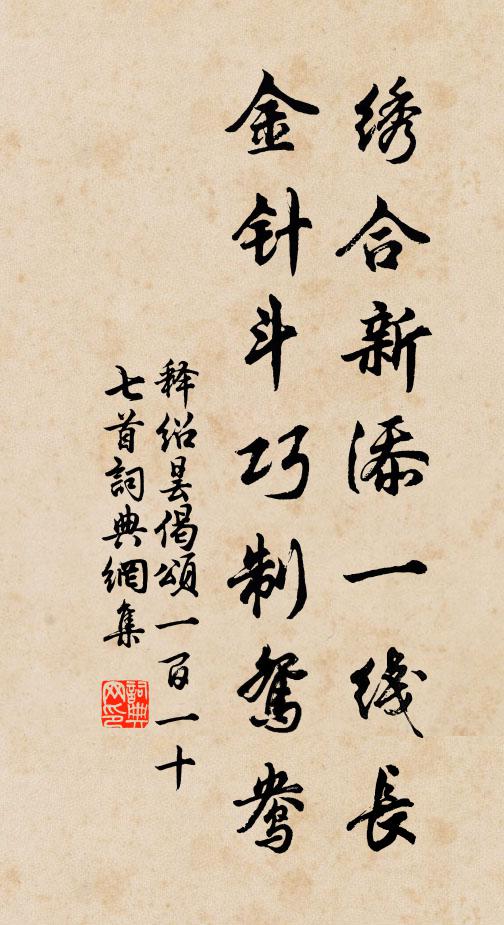 绣合新添一线长
金针斗巧制鸳鸯
释绍昙偈颂一百一十
七首詞典網集
詞典
网印